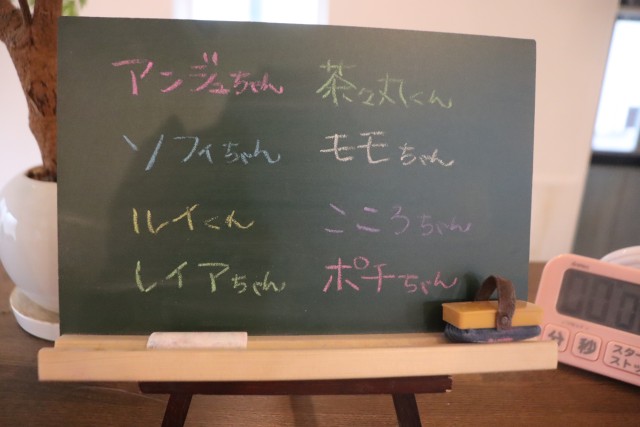 アンジュちゃん
ソフィちゃん
ルイくん
レイアちゃん
茶々丸くん
モモちゃん
こころちゃん
ポチちゃん
分
秒
スター
ストッ